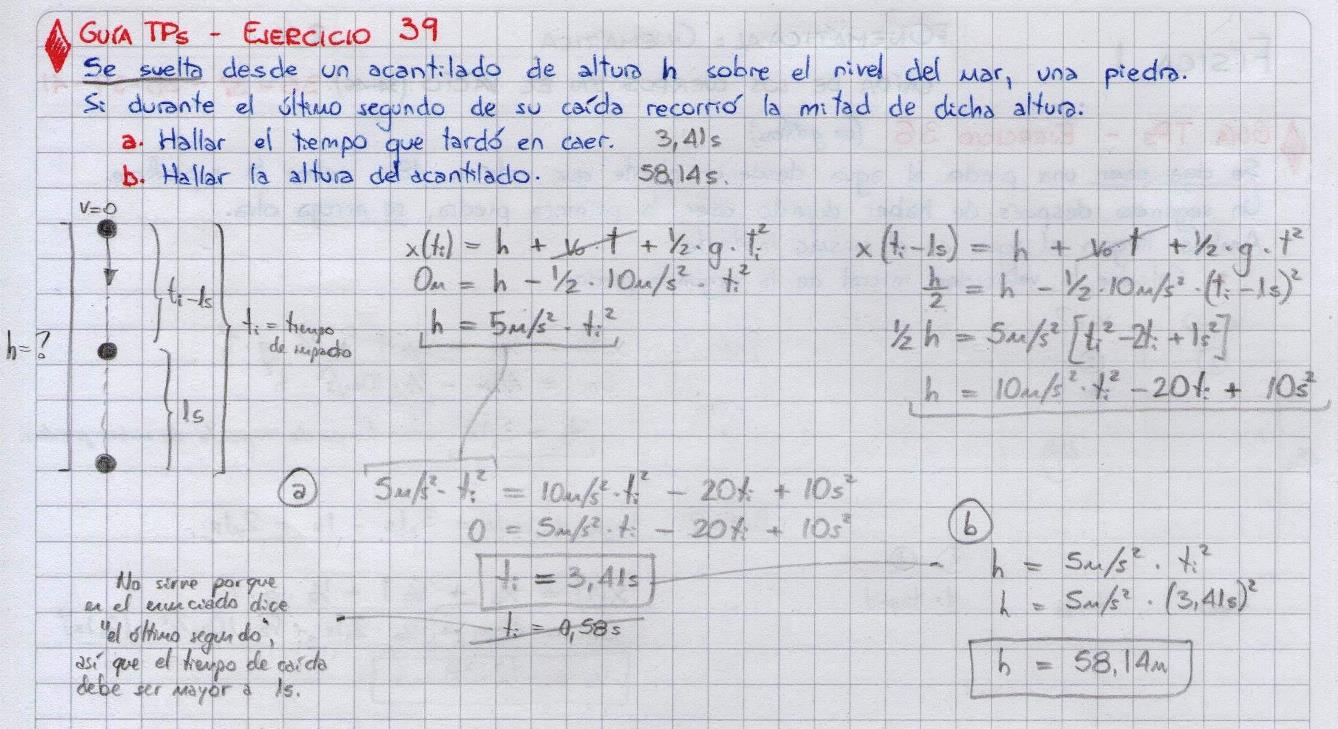 GUÍA TPs - EJERCICIO 39
Se suelta desde un acantilado de altura h sobre el nivel del mar, una piedra.
Si durante el último segundo de su caída recorrió la mitad de dicha altura:
a. Hallar el tiempo que tardó en caer. 3,41s
b. Hallar la altura del acantilado. 58,14 s.
v=0
h=?
ti-1s
1s
ti = tiempo
de impacto
x(ti) = h + v₀·t + 1/2·g·ti²
0m = h - 1/2·10m/s²·ti²
h = 5m/s²·ti²
x(ti-1s) = h + v₀·t + 1/2·g·t²
h/2 = h - 1/2·10m/s²·(ti-1s)²
1/2 h = 5m/s² [ti²-2ti+1s²]
h = 10m/s²·ti² - 20ti + 10s²
a
5m/s²·ti² = 10m/s²·ti² - 20ti + 10s²
0 = 5m/s²·ti - 20ti + 10s²
ti = 3,41s
ti = 0,58s
No sirve porque
en el enunciado dice
"el último segundo",
así que el tiempo de caída
debe ser mayor a 1s.
b
h = 5m/s² · ti²
h = 5m/s² · (3,41s)²
h = 58,14m